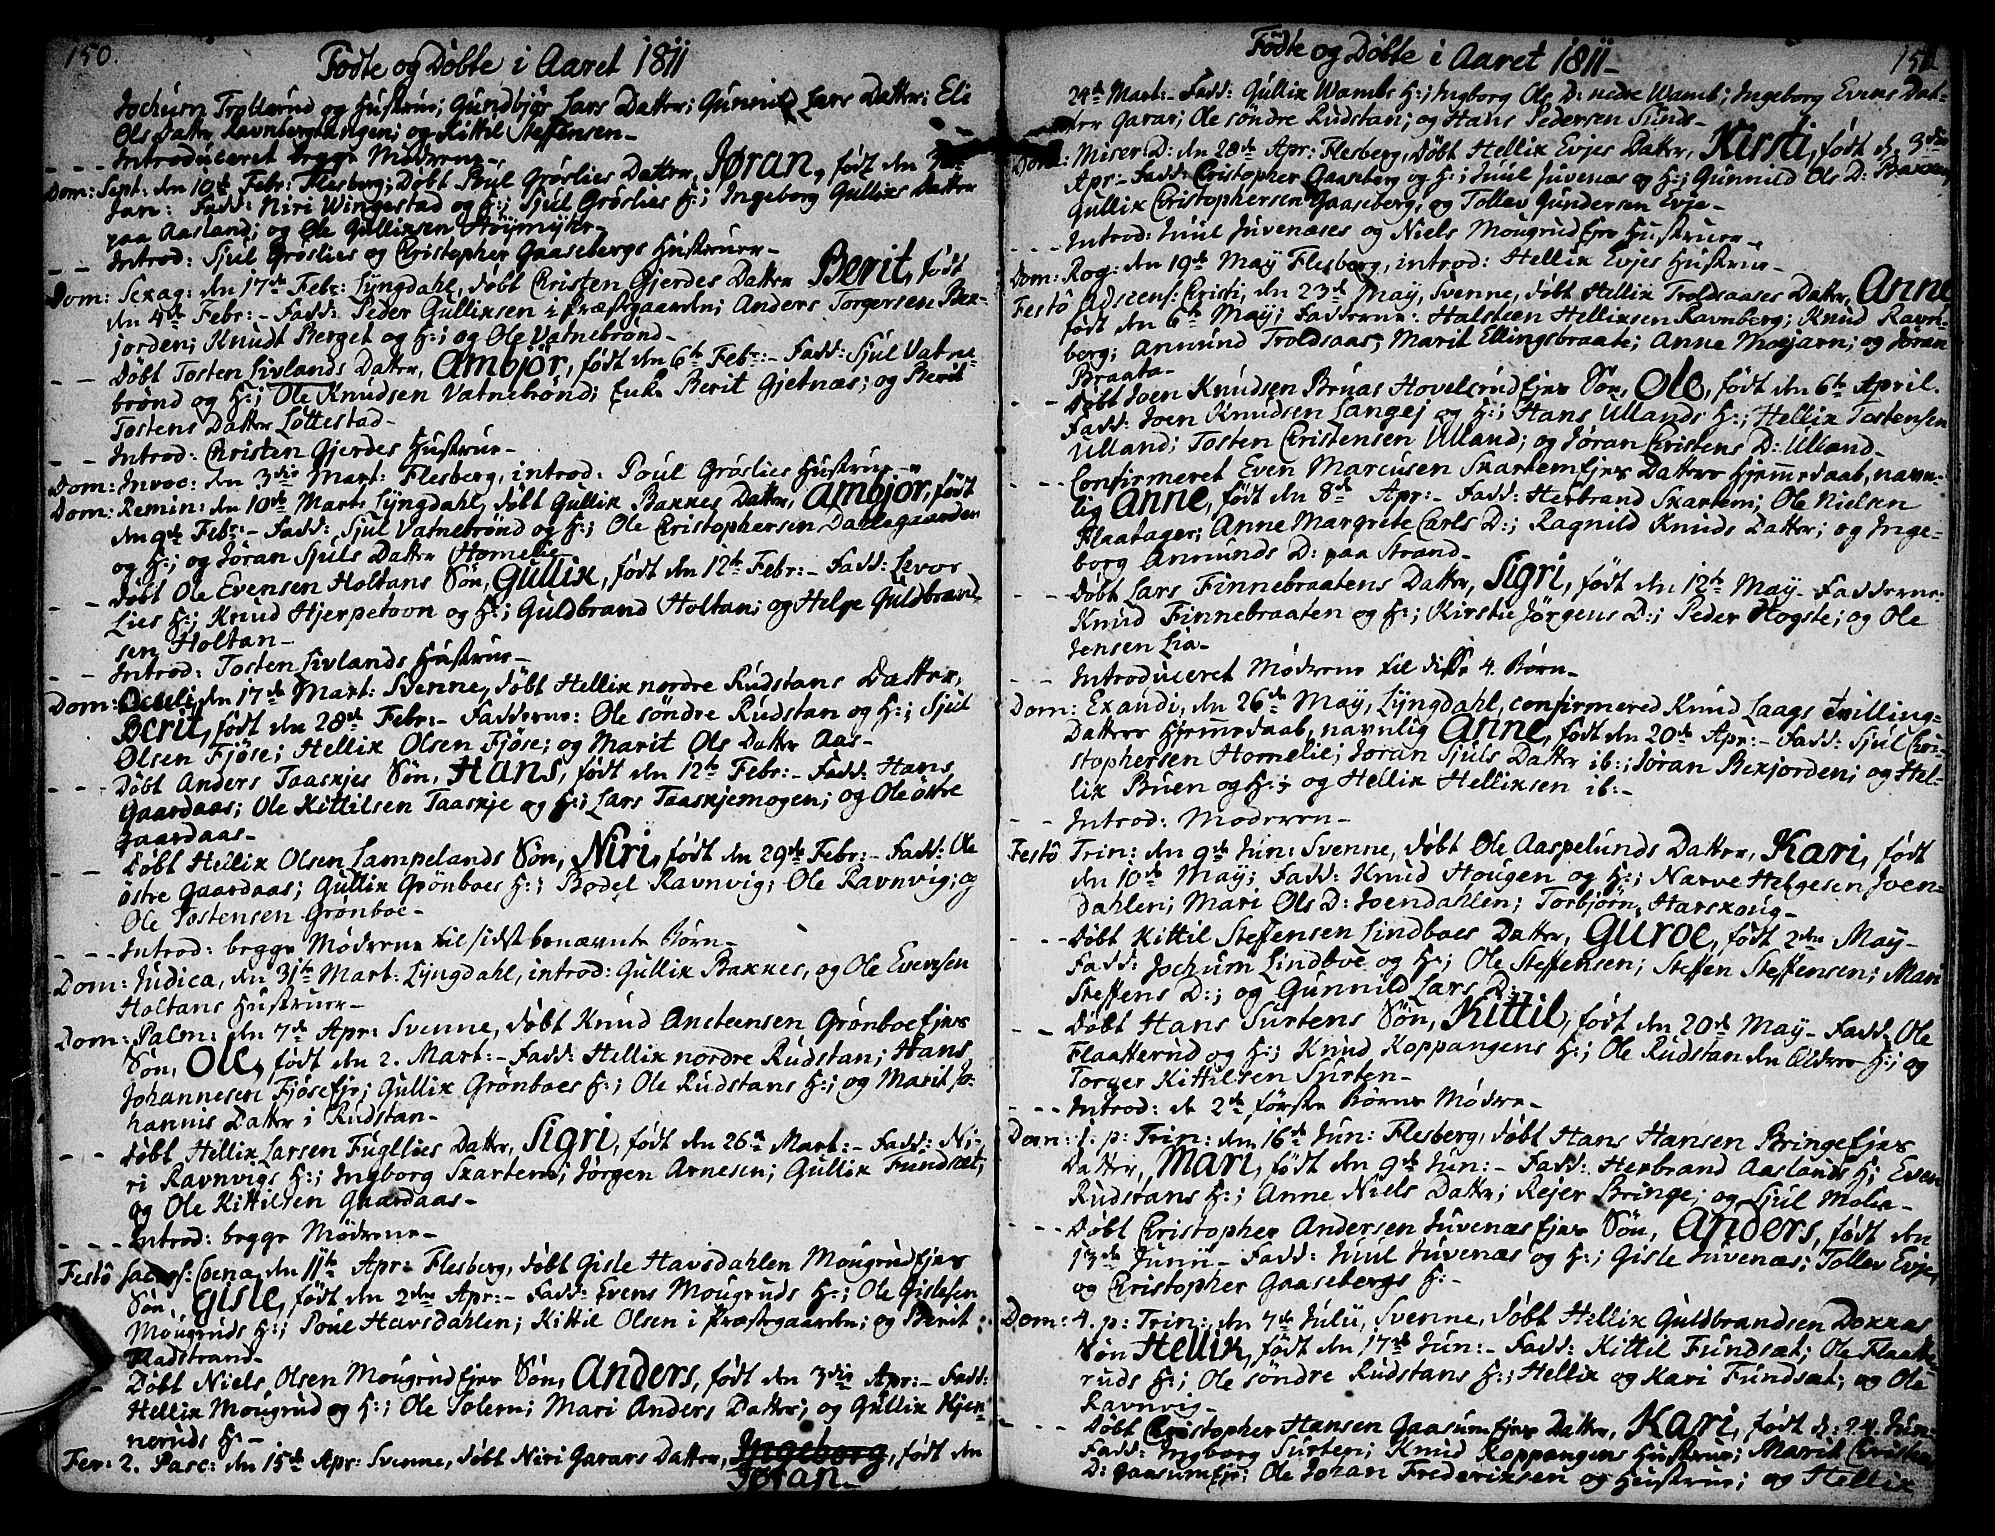 150.
Fødte og Døbte i Aaret 1811
Jochum Trollerud og Hustrue; Gundbjør Lars Datter; Gunnild Lars Datter; Eli
Ols Datter Ravnberghaugen; og Kittil Steffensen
- - - Introduceret begge Mødrene
Dom: Sept: den 10de Febr: Flesberg; Døbt Poul Grøslies Datter, Jøran, født den 3die
Jan: Fadd: Niri Wingestad og H:; Sjul Grøslies H:; Ingeborg Gulliks Datter
paa Aasland; og Ole Gulliksen Høymyhr
- - Introd: Sjul Grøslies og Christopher Gaasebergs Hustruer
Dom: Sexag: den 17de Febr: Lyngdahl, døbt Christen Gjerdes Datter Berit, født
den 4de Febr: Fadd: Peder Gulliksen i Præstegaarden; Anders Torgersen Bek-
jorden; Knudt Berget og H:; og Ole Vatnebrønd
- - Døbt Tosten Livlands Datter, Ambjør, født den 6te Febr: Fadd: Sjul Vatne-
brønd og H:; Ole Knudsen Vatnebrønd; Enke Berit Gjetnæs; og Berit
Tostens Datter Løttestad
- - Introd: Christen Gjerdes Hustrue
Dom: Invoc: den 3die Mart: Flesberg, introd: Poul Grøslies Hustrue
Dom: Remin: den 10de Mart: Lyngdahl, døbt Gullik Bakkes Datter, Ambjør, født
den 9de Febr: Fadd: Sjul Vatnebrønd og H:; Ole Christophersen Dahlsgaarden
og H:; og Jøran Sjuls Datter Homelie
- - Døbt Ole Evensen Holtans Søn, Gullik, født den 12te Febr: Fadd: Levor
Lies H:; Knud Hjerpetovn og H:; Guldbrand Holtan; og Helge Guldbrand-
sen Holtan
- - Introd: Tosten Livlands Hustrue
Dom: Oculi, den 17de Mart: Svenne, døbt Hellik nordre Rudstans Datter,
Berit, født den 28de Febr: Fadderne: Ole søndre Rudstan og H:; Sjul
Olsen Fjøse; Hellik Olsen Fjøse; og Marit Ols Datter Aas
- - - Døbt Anders Taaskjes Søn, Hans, født den 12te Febr: Fadd: Hans
Gaardaas; Ole Kittilsen Taaskje og H:; Lars Taaskjemogen; og Ole østre
Gaardaas
- - Døbt Hellik Olsen Lampelands Søn, Niri, født den 29de Febr: Fadd: Ole
østre Gaardaas; Gullik Grønboes H:; Bodel Ravnvig; Ole Ravnvig; og
Ole Tostensen Grønboe
- - - Introd: begge Mødrene til sidst benævnte Børn
Dom: Judica, den 31te Mart: Lyngdahl, introd: Gullik Bakkes, og Ole Evensen
Holtans Hustruer
Dom: Palm: den 7de Apr: Svenne, døbt Knud Ansteensen Grønboeejes
Søn, Ole, født den 2. Mart: Fadd: Hellik nordre Rudstan; Hans
Johannesen Fjøseeje; Gullik Grønboes H:; Ole Rudstans H:; og Marit Jo-
hannis Datter i Rudstan
- - Døbt Hellik Larsen Fugllies Datter, Sigri, født den 26de Mart: Fadd: Ni-
ri Ravnvigs H:; Ingborg Skartem; Jørgen Arnesen; Gullik Fundsæt;
og Ole Kittilsen Gaardaas
- - - Introd: begge Mødrene
Festô sacros: Coena, den 11te Apr: Flesberg, døbt Gisle Havsdahlen Mougrudejes
Søn, Gisle, født den 2den Apr: Fadd: Evens Mougruds H:; Ole Gislesen
Mougruds H:; Poul Havsdahlen; Kittil Olsen i Præstegaarden; og Berit
Fladstrand
- Døbt Niels Olsen Mougrudejes Søn, Anders, født den 3die Apr: Fadd:
Hellik Mougrud og H:; Ole Solem; Mari Anders Datter; og Gullik Kjen-
neruds H:
Fer: 2. Pasc: den 15de Apr: Svenne, døbt Niri Garaas Datter, Ingeborg, født den
Jøran
151
Fødte og Døbte i Aaret 1811
24de Mart: Fadd: Gullik Wambs H:; Ingborg Ols D: nedre Wamb; Ingeborg Evens Dat-
ter Garaas; Ole søndre Rudstan; og Hans Pedersen Sunds
Dom: Miser D: den 28de Apr: Flesberg, døbt Hellik Evjes Datter, Kirsti, født d. 3die
Apr: Fadd: Christopher Gaaseberg og H:; Juul Juvenæs og H:; Gunnild Ols D: Bakken;
Gullik Christophersen Gaaseberg; og Tollev Gundersen Evje
- - - Introd: Juul Juvenæses og Niels Mougrudejes Hustruer
Dom: Rog: den 19de May Flesberg, introd: Hellik Evjes Hustrue
Festô Adscens: Christi, den 23de May, Svenne, døbt Hellik Troldsaases Datter, Anne
født den 6te May; Fadderne: Halsteen Helliksen Ravnberg; Knud Ravn-
berg; Anmund Troldsaas; Marit Ellingsbraate; Anne Moejarn; og Jøran
Braata
- - Døbt Joen Knudsen Brunas Hovelsrudejes Søn, Ole, født den 6te April.
Fadd: Joen Knudsen Langej og H:; Hans Ullands H:; Hellik Tostensen
Ulland; Tosten Christensen Ulland; og Jøran Christens D: Ulland
- - - Confirmeret Even Marcusen Skartemejes Datters Hjemmedaab, navn-
lig Anne, født den 8de Apr: Fadd: Herbrand Skartem; Ole Nielsen
Flaatager; Anne Margrete Carls D:; Ragnild Knuds Datter; og Inge-
borg Anmunds D: paa Strand
- - - Døbt Lars Finnebraatens Datter, Sigri, født den 12te May Fadderne:
Knud Finnebraaten og H:; Kirstie Jørgens D:; Peder Hogste; og Ole
Jensen Lia
- - - Introduceret Mødrene til disse 4. Børn
Dom: Exaudi, den 26de May, Lyngdahl, confirmered Knud Laags Tvilling-
Datters Hjemmedaab, navnlig Anne, født den 20de Apr: Fadd: Sjul Chri-
stophersen Homelie; Jøran Sjuls Datter ib:; Jøran Bekjorden; og Hel-
lik Buen og H:; og Hellik Helliksen ib:
- - Introd: Moderen
Festô Trin: den 9de Jun: Svenne, døbt Ole Aaspelunds Datter, Kari, født
den 10de May; Fadd: Knud Hougen og H:; Narve Helgesen Joen-
dahlen; Mari Ols D: Joendahlen; Torbjørn Harskoug
- - - Døbt Kittil Steffensen Lindboes Datter, Guroe, født 2den May
Fadd: Jochum Lindboe og H:; Ole Steffensen; Steffen Steffensen; Mari
Steffens D:; og Gunnild Lars D:
- - Døbt Hans Surtens Søn, Kittil, født den 20de May Fadd: Ole
Flaatterud og H:; Knud Koppangens H:; Ole Rudstan den Ældres H:; og
Torger Kittilsen Surten
- - - Introd: de 2de første Børns Mødre
Dom: 1. p: Trin: den 16de Jun: Flesberg, døbt Hans Hansen Bringeejes
Datter, Mari, født den 9de Jun: Fadd: Herbrand Aaslands H:; Even
Rudstans H:; Anne Niels Datter; Rejer Bringe; og Sjul Molia
- - - Døbt Christopher Andersen Juvenæsejes Søn, Anders, født den
13de Junii Fadd: Juul Juvenæs og H:; Gisle Juvenæs; Tollev Evje,
og Christopher Gaasebergs H:
Dom: 4. p: Trin:, den 7de Julii, Svenne, døbt Hellik Guldbrandsen Dokkas
Søn Hellik, født den 17de Jun: Fadd: Kittil Fundsæt; Ole Flaatte-
ruds H:; Ole søndre Rudstans H:; Hellik og Kari Fundsæt; og Ole
Ravnvig
- - - Døbt Christopher Hansen Gaasumejes Datter, Kari, født d: 24. Jun:
Fadd: Ingborg Surten; Knud Koppangens Hustrue; Marit Christens
D: Gaasumeje; Ole Johan Frederiksen og Hustrue; og Hellik